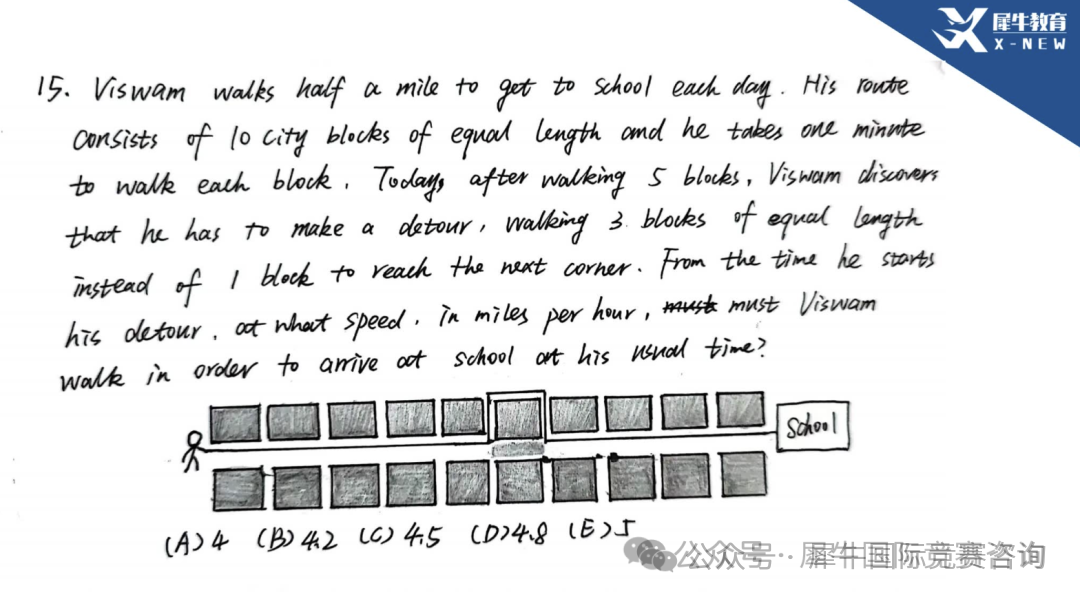 犀牛教育
X-NEW
15. Viswam walks half a mile to get to school each day. His route
consists of 10 city blocks of equal length and he takes one minute
to walk each block. Today, after walking 5 blocks, Viswam discovers
that he has to make a detour, walking 3 blocks of equal length
instead of 1 block to reach the next corner. From the time he starts
his detour, at what speed, in miles per hour, must must Viswam
walk in order to arrive at school at his usual time?
School
(A) 4 (B) 4.2 (C) 4.5 (D) 4.8 (E) 5
公众号·犀牛国际竞赛咨询